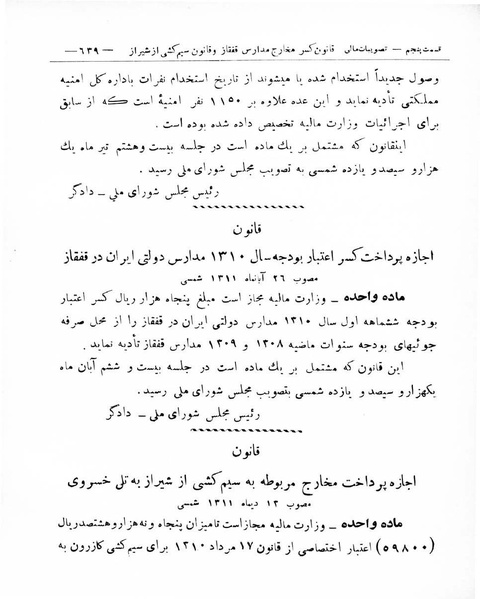 قسمت پنجم — تصویبات مالی  قانون کسر مخارج مدارس قفقاز و قانون سیم کشی از شیراز — ٦٣٩ —
وصول جدیداً استخدام شده یا میشوند از تاریخ استخدام نفرات باداره کل امنیه
مملکتی تأدیه نماید و این عده علاوه بر ۱۱۵۰ نفر امنیهٔ است که از سابق
برای اجرائیات وزارت مالیه تخصیص داده شده بوده است .
اینقانون که مشتمل بر یك ماده است در جلسه بیست وهشتم تیر ماه یك
هزارو سیصد و یازده شمسی به تصویب مجلس شورای ملی رسید .
رئیس مجلس شورای ملی — دادگر
قانون
اجازه پرداخت کسر اعتبار بودجه سال ۱۳۱۰ مدارس دولتی ایران در قفقاز
مصوب ۲٦ آبانماه ۱۳۱۱ شمسی
ماده واحده — وزارت مالیه مجاز است مبلغ پنجاه هزار ریال کسر اعتبار
بودجه ششماهه اول سال ۱۳۱۰ مدارس دولتی ایران در قفقاز را از محل صرفه
جوئیهای بودجه سنوات ماضیه ۱۳۰۸ و ۱۳۰۹ مدارس قفقاز تأدیه نماید .
این قانون که مشتمل بر یك ماده است در جلسه بیست و ششم آبان ماه
یکهزارو سیصد و یازده شمسی بتصویب مجلس شورای ملی رسید .
رئیس مجلس شورای ملی — دادگر
قانون
اجازه پرداخت مخارج مربوطه به سیم کشی از شیراز به تلی خسروی
مصوب ۱۲ دیماه ۱۳۱۱ شمسی
ماده واحده — وزارت مالیه مجازاست تامیزان پنجاه ونه هزاروهشتصدریال
(٥٩٨٠٠) اعتبار اختصاصی از قانون ۱۷ مرداد ۱۳۱۰ برای سیم کشی کازرون به